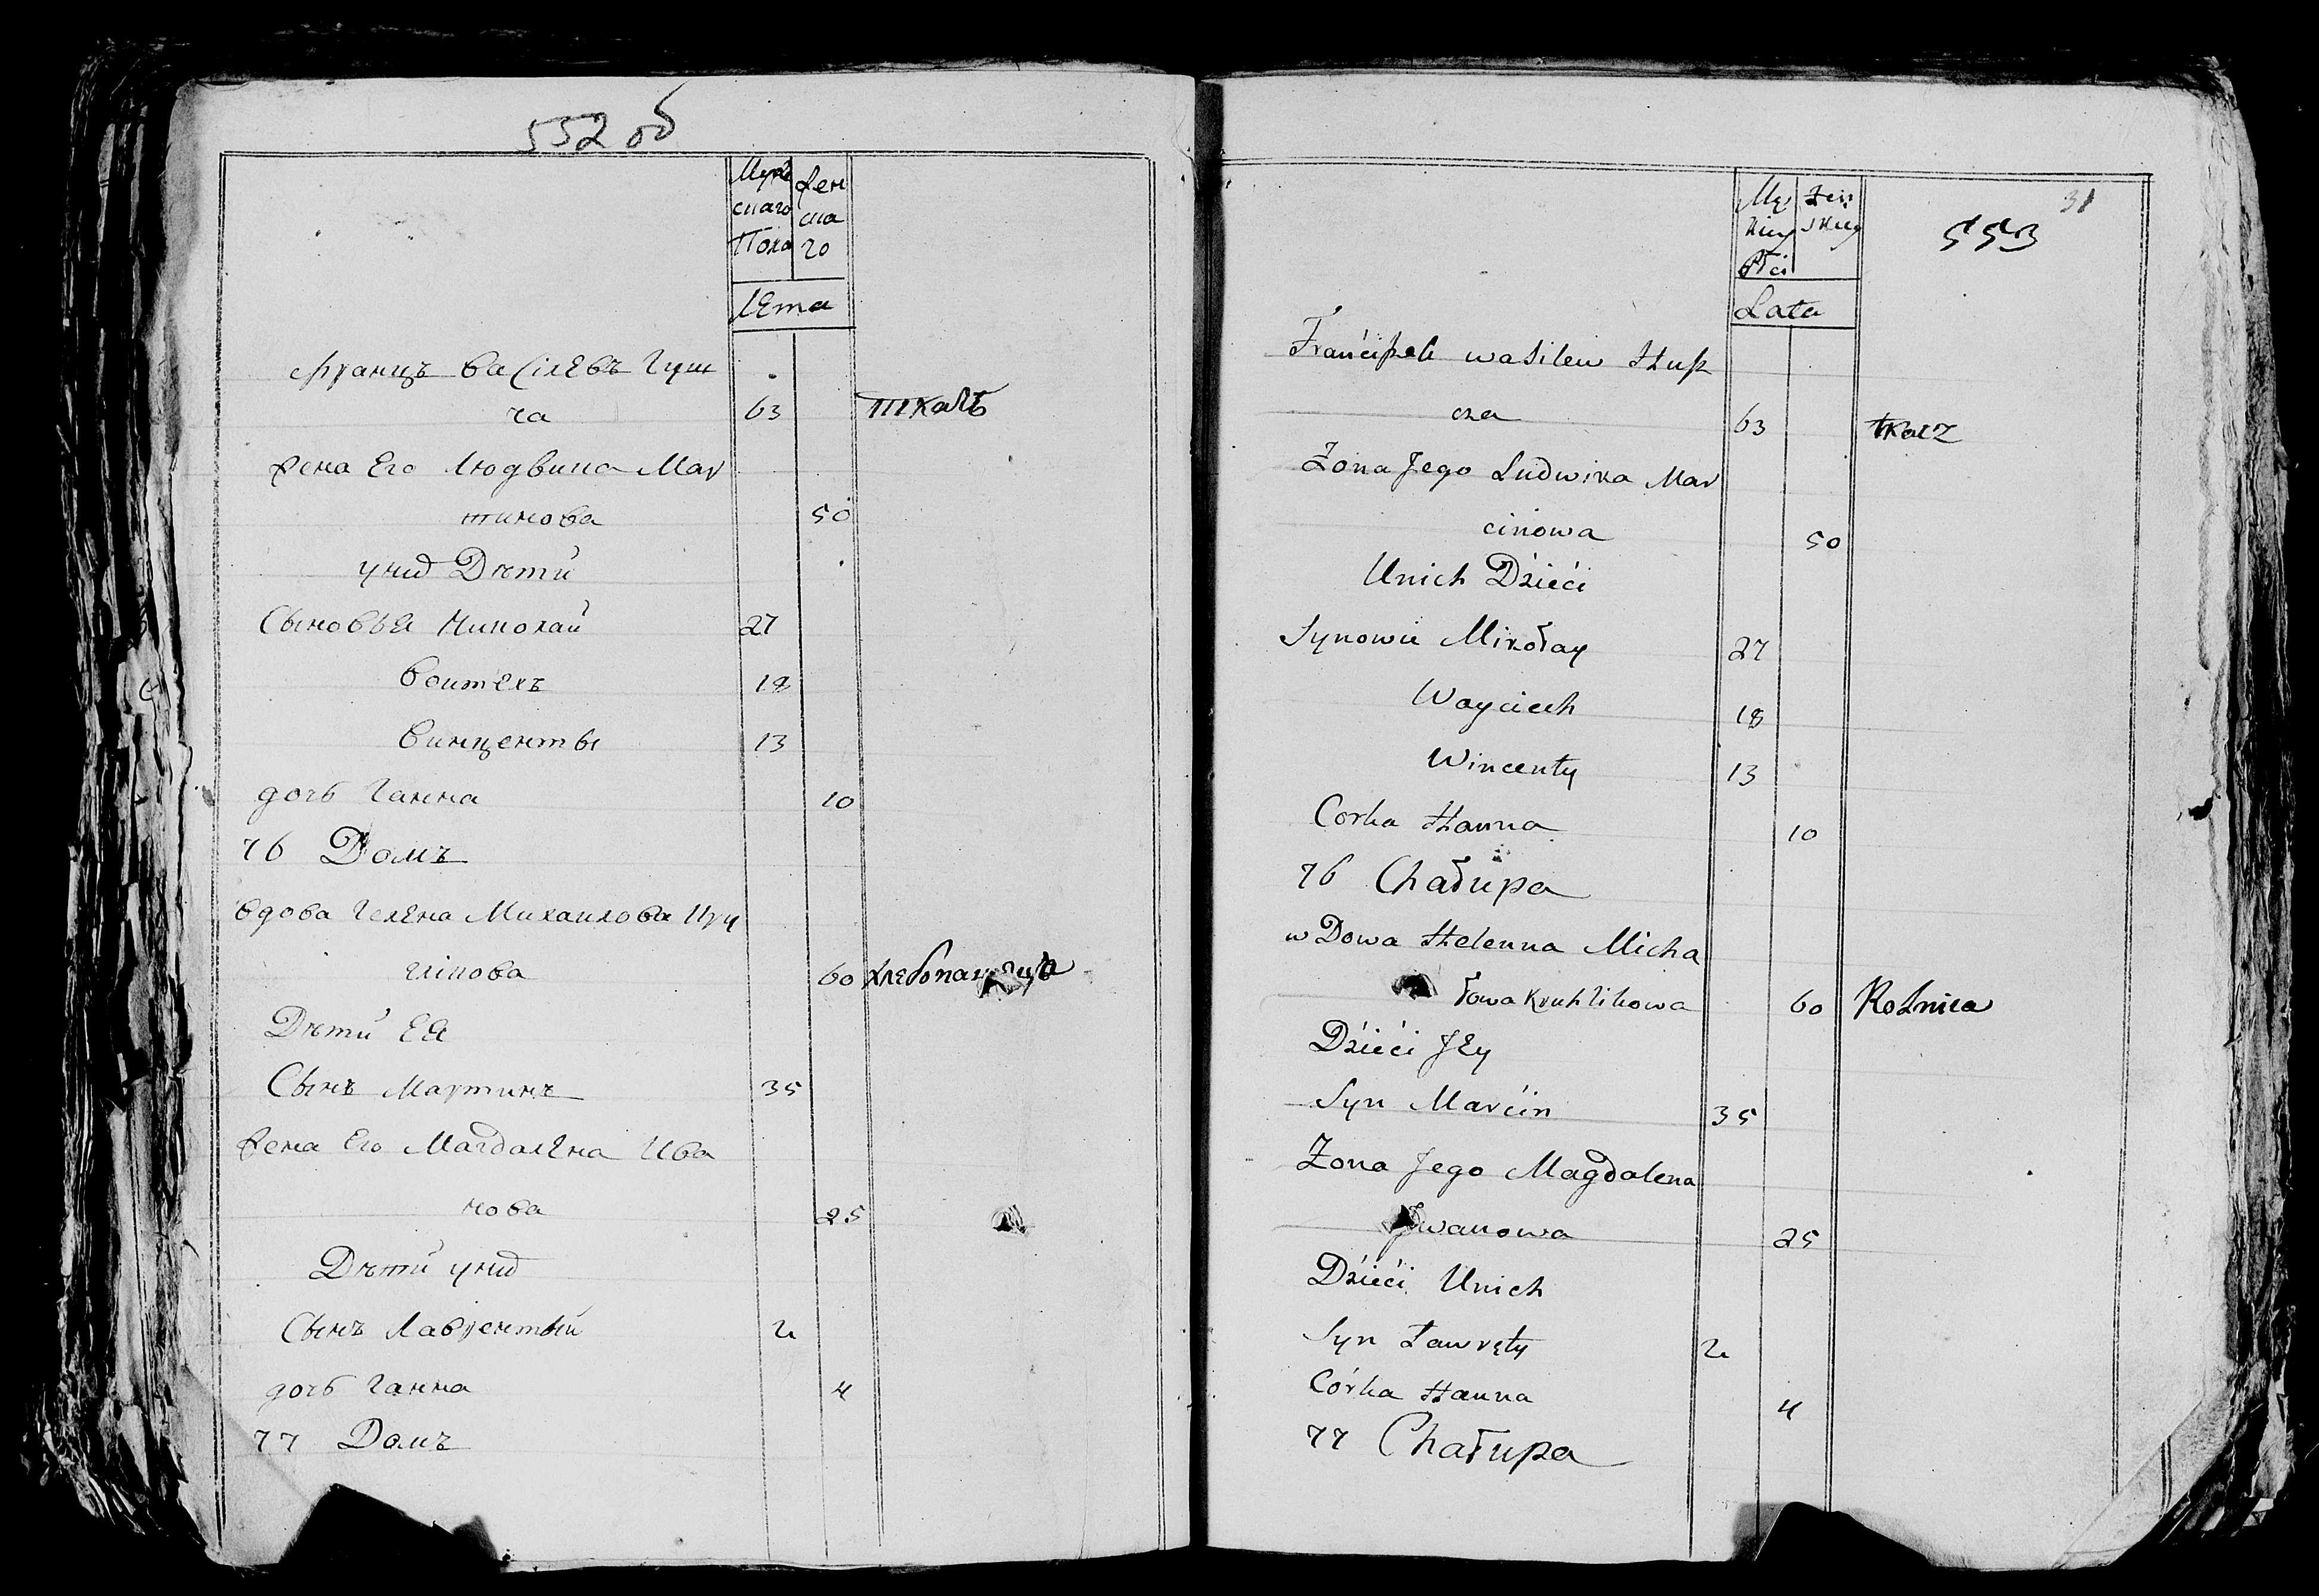 552 об
Муже Жен
скаго ска
Пола го
Лета
Францъ Васілевъ Гуш
ча 63 ткачъ
Жена Его Людвика Мар
тинова 50
уних Дѣти
Сыновья Николай 27
Войтехъ 18
Винценты 13
дочь Ганна 10
76 Домъ
вдова Гелена Михаилова Круг
ликова 60
Дѣти Ея
Сынъ Мартинъ 35
Жена Его Магдалена Ива
нова 25
Дѣти уних
Сынъ Лаврентый 2
дочь Ганна 4
77 Домъ
31
553
Męs Żeń
kiey skiey
Płci
Lata
Franciszek wasilew Husz
cza 63 tkacz
Żona Jego Ludwika Mar
cinowa 50
Unich Dzieci
Synowie Mikołay 27
Woyciech 18
Wincenty 13
Corka Hanna 10
76 Chałupa
wDowa Helenna Micha
łowa Kruhlikowa 60 Rolnica
Dzieci Jey
Syn Marcin 35
Zona Jego Magdalena
Jwanowa 25
Dzieci Unich
Syn Ławręty 2
Córka Hanna 4
77 Chałupa